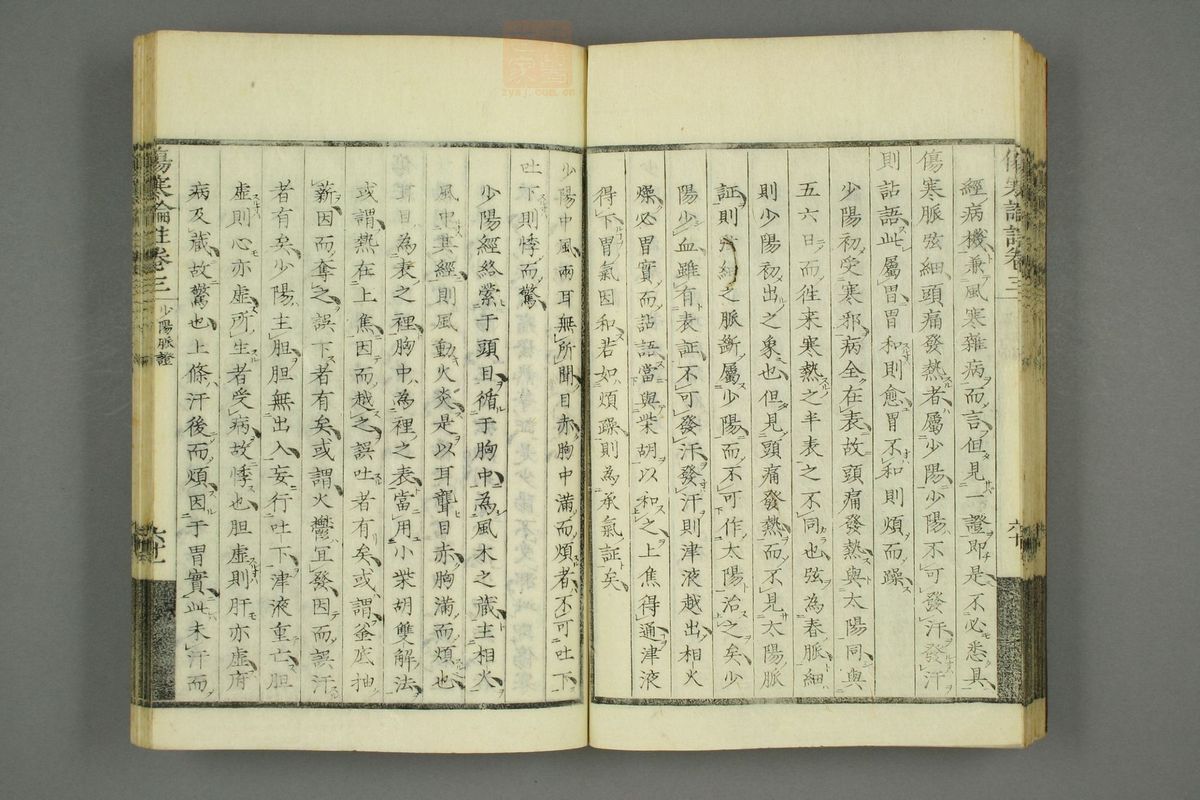 經病機兼風寒雜病而言但見一證即是不必悉具
傷寒脈弦細頭痛發熱者屬少陽少陽不可發汗發汗
則詀語此屬胃胃和則愈胃不和則煩而躁
少陽初受寒邪病全在表故頭痛發熱與太陽同與
五六日而往来寒熱之半表之不同也弦為春脈細
則少陽初出之象也但見頭痛發熱而不見太陽脈
証則弦細之脈斷屬少陽而不可作太陽治之矣少
陽少血雖有表証不可發汗發汗則津液越出相火
燥必胃實而詀語當與柴胡以和之上焦得通津液
得下胃氣因和若如煩躁則為承氣証矣
少陽中風兩耳無所聞目赤胸中滿而煩者不可吐下
吐下則悸而驚
少陽經絡縈于頭目循于胸中為風木之藏主相火
風中其經則風動火炎是以耳聾目赤胸滿而煩也
耳目為表之裡胸中為裡之表當用小柴胡雙解法
或謂熱在上焦因而越之誤吐者有矣或謂釜底抽
薪因而奪之誤下者有矣或謂火鬱宜發因而誤汗
者有矣少陽主胆胆無出入妄行吐下津液重亡胆
虛則心亦虛所生者受病故悸也胆虛則肝亦虛府
病及藏故驚也上條汗後而煩因于胃實此未汗而
傷寒論註卷三
少陽脈證
六十
六十一
zysj.com.cn